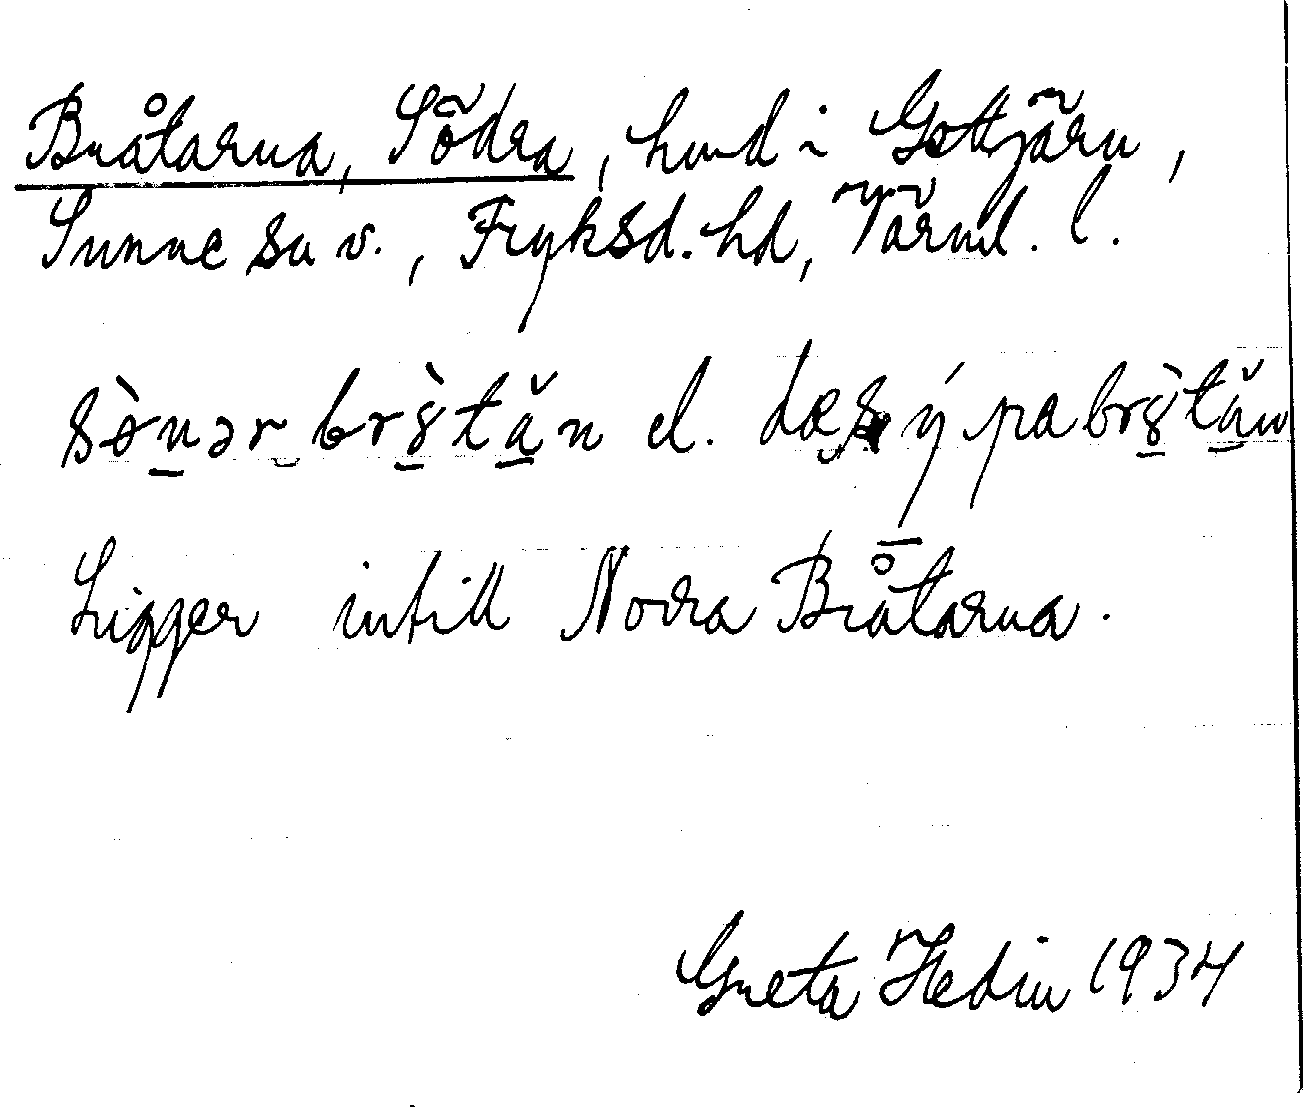 Bråtarna, Södra, hmd i Gottjärn,
Sunne sn v., Fryksd. hd, Värml. l.
sò̱ṉər brs̱̀tă̱n el. dæs ý pa brs̱̀tă̱n
Ligger intill Norra Bråtarna.
Greta Hedin 1934